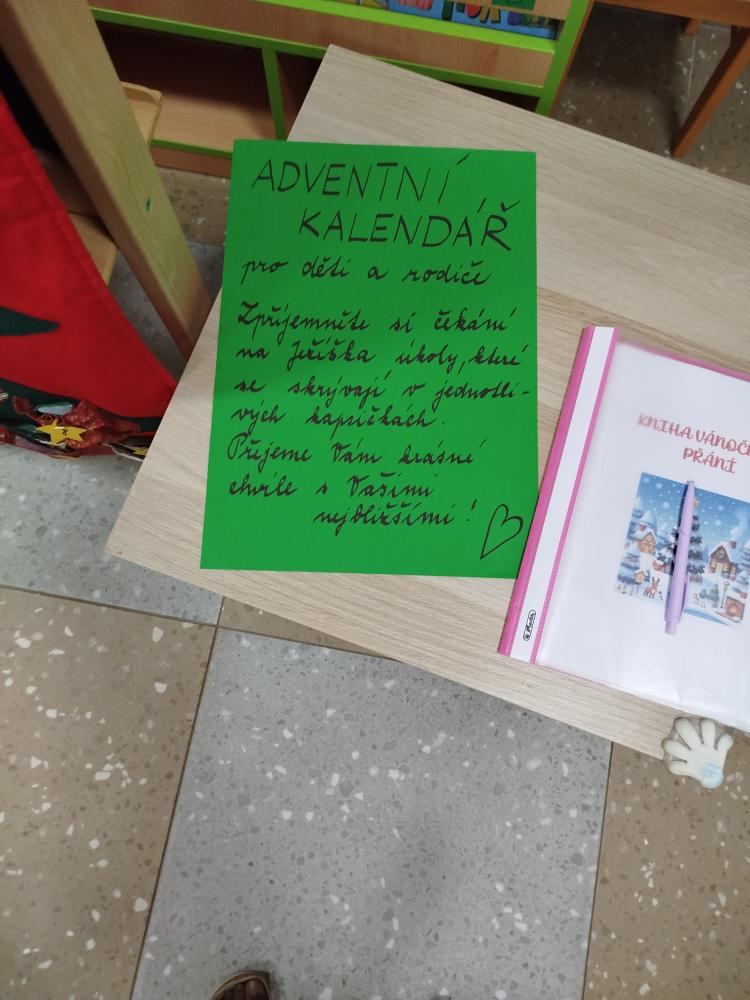 ADVENTNÍ
KALENDÁŘ
pro děti a rodiče
Zpříjemněte si čekání
na Ježíška úkoly, které
se skrývají v jednotli-
vých kapsičkách.
Přejeme Vám krásné
chvíle s Vašimi
nejbližšími!
KNIHA
PŘÁNÍ
Herlitz